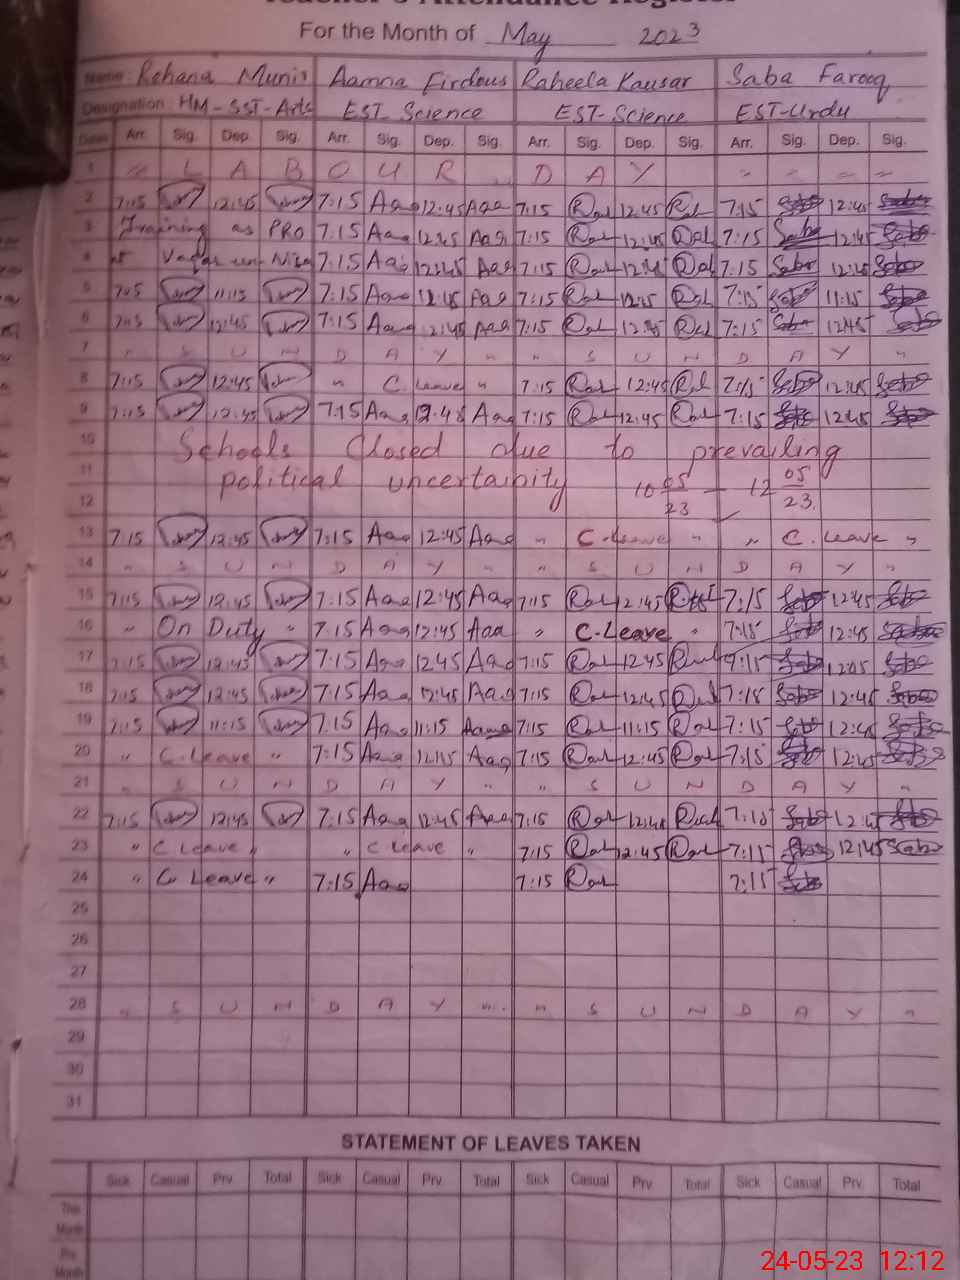 Teacher's Attendance Register
For the Month of May 2023
Name: Rehana Munir Aamna Firdous Raheela Kausar Saba Farooq
Designation: HM-SST-Arts EST Science EST-Science EST-Urdu
Date Arr. Sig. Dep. Sig. Arr. Sig. Dep. Sig. Arr. Sig. Dep. Sig. Arr. Sig. Dep. Sig.
1 " L A B O U R D A Y " " " "
2 7:15 12:45 7:15 Aaa 12:45 Aaa 7:15 Ral 12:45 Ral 7:15 Saba 12:45 Saba
3 Training as PRO 7:15 Aaa 12:45 Aaa 7:15 Ral 12:45 Ral 7:15 Saba 12:45 Saba
4 at 7:15 Aaa 12:45 Aaa 7:15 Ral 12:45 Ral 7:15 Saba 12:45 Saba
5 7:15 11:15 7:15 Aaa Aaa 7:15 Ral Ral 7:15 Saba 11:15 Saba
6 7:15 12:45 7:15 Aaa 12:45 Aaa 7:15 Ral 12:45 Ral 7:15 Saba 12:45 Saba
7 " S U N D A Y " " S U N D A Y "
8 7:15 12:45 " C. Leave " 7:15 Ral 12:45 Ral 7:15 Saba 12:45 Saba
9 7:15 12:45 7:15 Aaa 12:45 Aaa 7:15 Ral 12:45 Ral 7:15 Saba 12:45 Saba
10 Schools Closed due to prevailing
11 political uncertainity 10 05/23 - 12 05/23
12
13 7:15 12:45 7:15 Aaa 12:45 Aaa " C.Leave " " C. Leave "
14 " S U N D A Y " " S U N D A Y "
15 7:15 12:45 7:15 Aaa 12:45 Aaa 7:15 Ral 12:45 Ral 7:15 Saba 12:45 Saba
16 " On Duty " 7:15 Aaa 12:45 Aaa " C-Leave " 7:15 Saba 12:45 Saba
17 7:15 12:45 7:15 Aaa 12:45 Aaa 7:15 Ral 12:45 Ral 7:15 Saba Saba
18 7:15 12:45 7:15 Aaa 12:45 Aaa 7:15 Ral 12:45 Ral 7:15 Saba 12:45 Saba
19 7:15 11:15 7:15 Aaa 11:15 Aaa 7:15 Ral 11:15 Ral 7:15 Saba 12:45 Saba
20 " C.Leave " 7:15 Aaa Aaa 7:15 Ral 12:45 Ral 7:15 Saba 12:45 Saba
21 " S U N D A Y " " S U N D A Y "
22 7:15 12:45 7:15 Aaa 12:45 Aaa 7:15 Ral 12:45 Ral 7:15 Saba 12:45 Saba
23 " C Leave " " C Leave " 7:15 Ral 12:45 Ral 7:15 Saba 12:45 Saba
24 " C Leave " 7:15 Aaa 7:15 Ral 7:15 Saba
25
26
27
28 " S U N D A Y " " S U N D A Y "
29
30
31
STATEMENT OF LEAVES TAKEN
Sick Casual Prv. Total Sick Casual Prv. Total Sick Casual Prv. Total Sick Casual Prv. Total
This Month
Prv Month
24-05-23 12:12